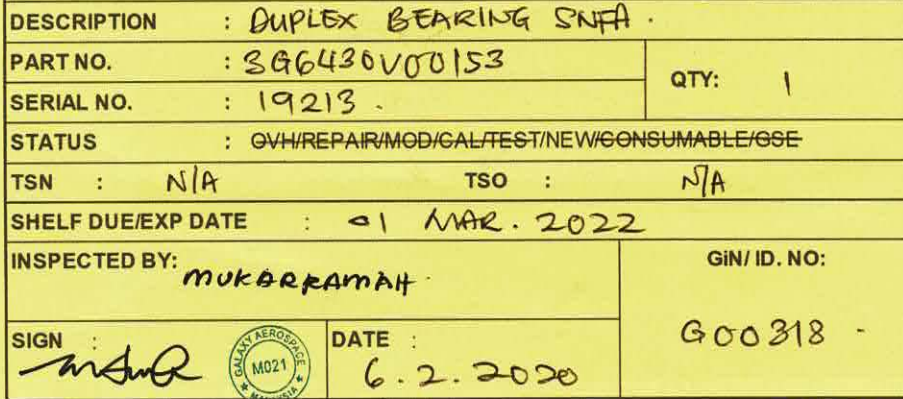 DESCRIPTION : DUPLEX BEARING SNFA.
PART NO. : 3G6430V00153
QTY: 1
SERIAL NO. : 19213.
STATUS : OVH/REPAIR/MOD/CAL/TEST/NEW/CONSUMABLE/GSE
TSN : N/A TSO : N/A
SHELF DUE/EXP DATE : 01 MAR. 2022
INSPECTED BY: MUKARRAMAH
GiN/ ID. NO:
G00318 -
SIGN :
GALAXY AEROSPACE
M021
MALAYSIA
DATE : 6.2.2020